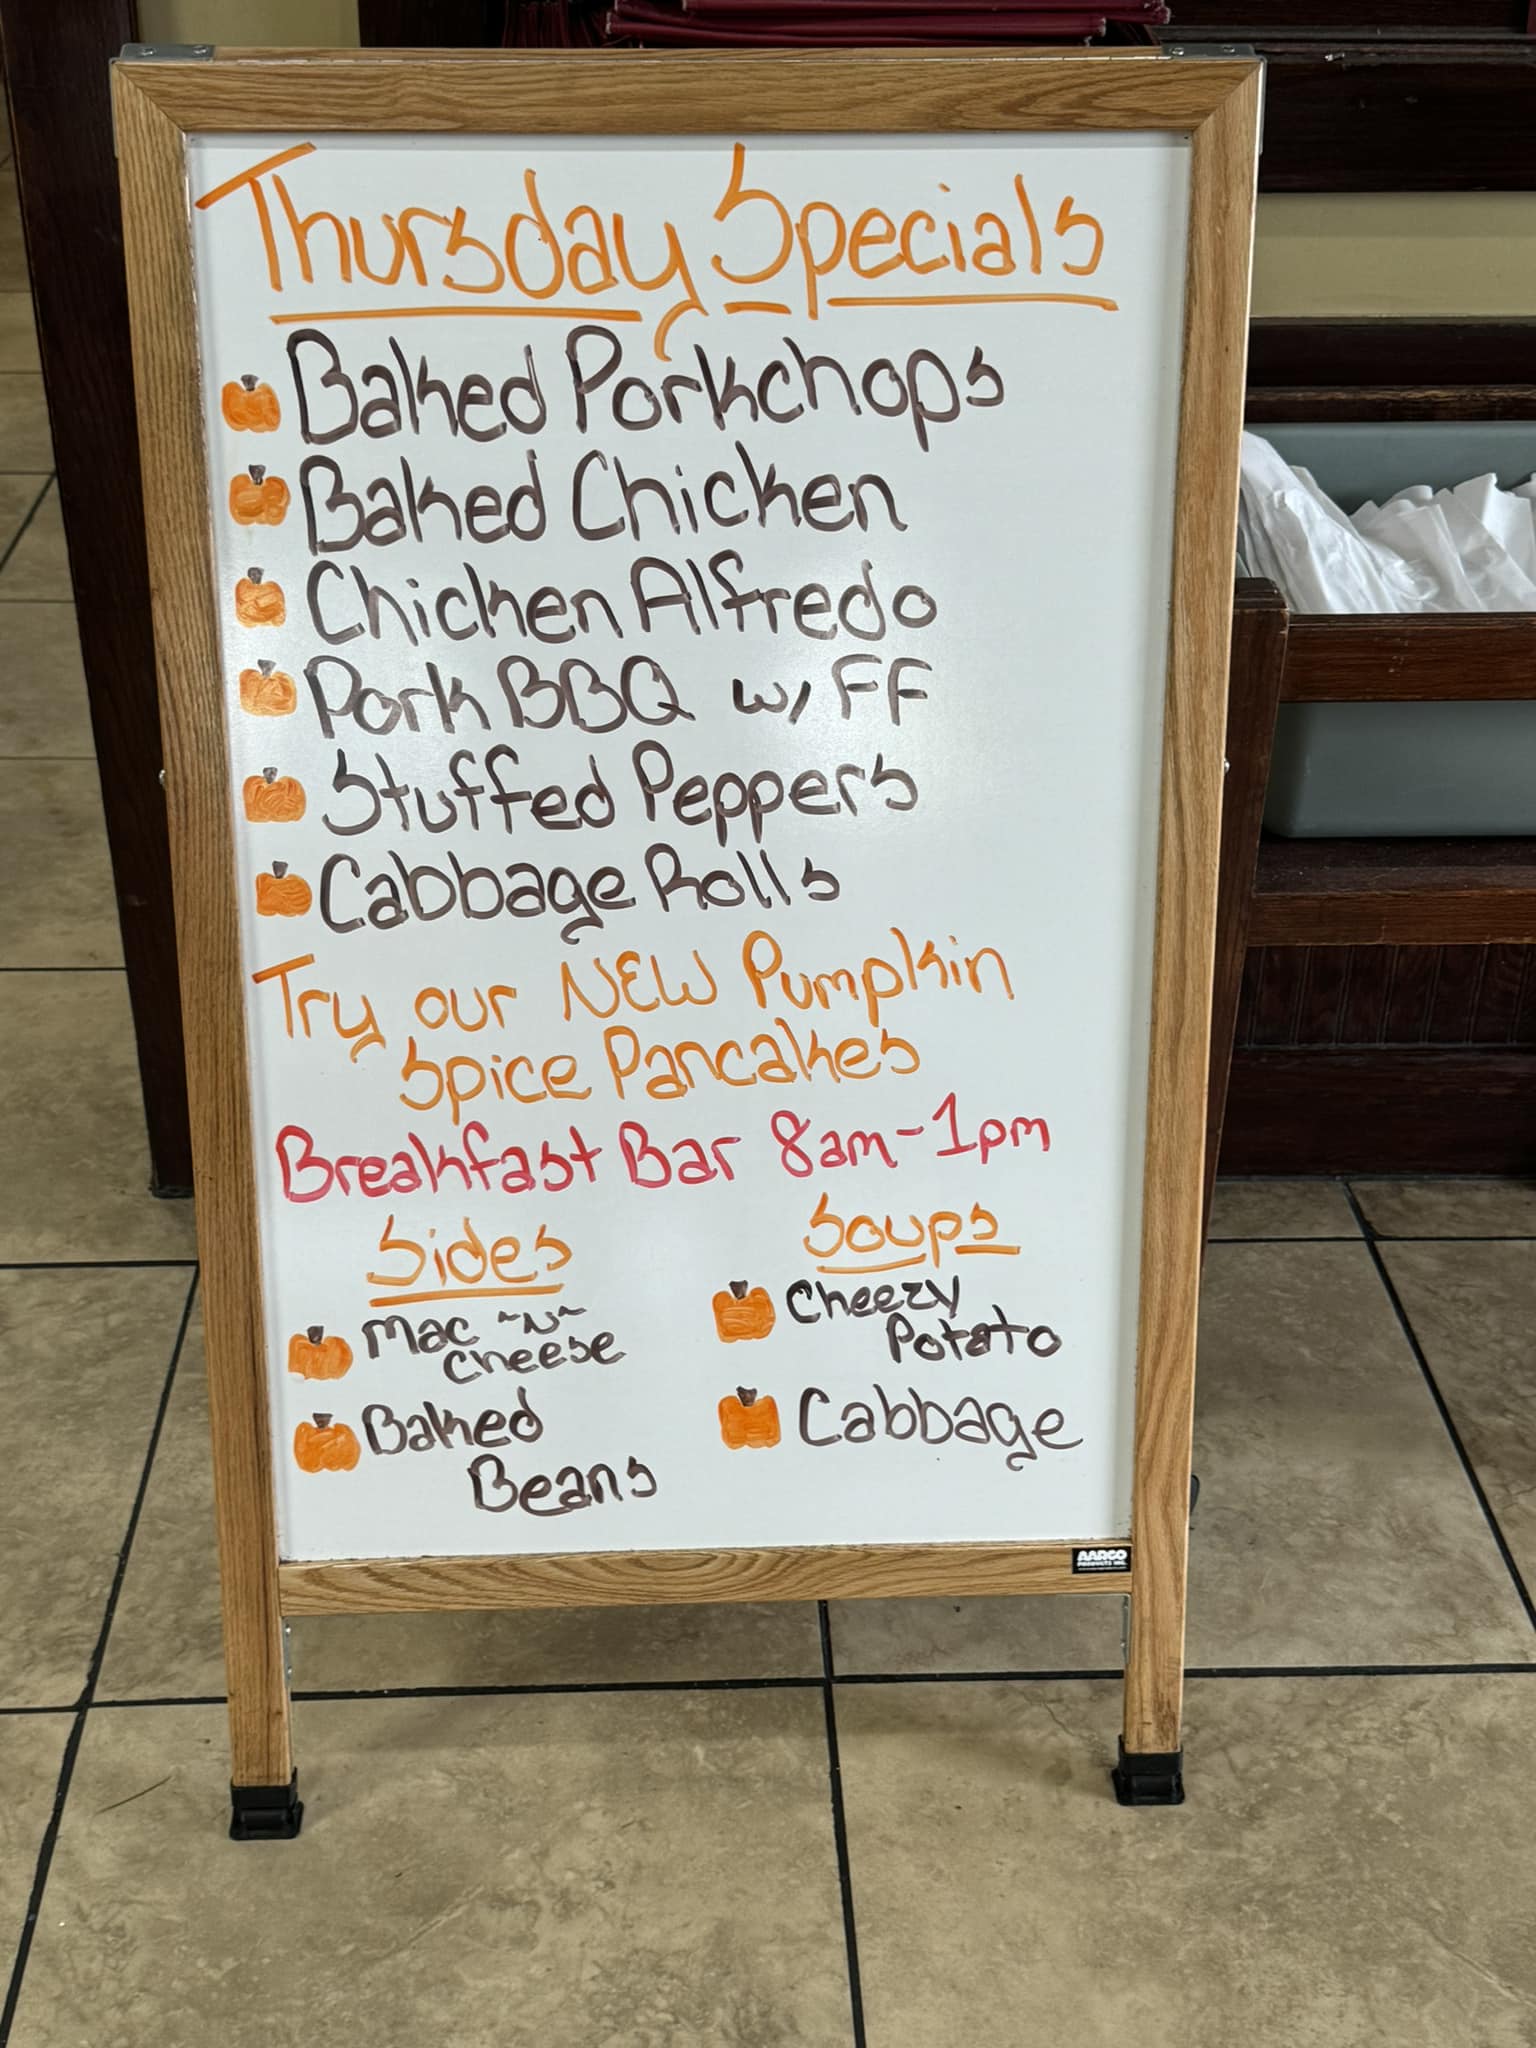 Thursday Specials
Baked Porkchops
Baked Chicken
Chicken Alfredo
Pork BBQ w/ FF
Stuffed Peppers
Cabbage Rolls
Try our NEW Pumpkin
Spice Pancakes
Breakfast Bar 8am-1pm
Sides
Mac ~N~
Cheese
Baked
Beans
Soups
Cheezy
Potato
Cabbage
AARCO
PRODUCTS INC.